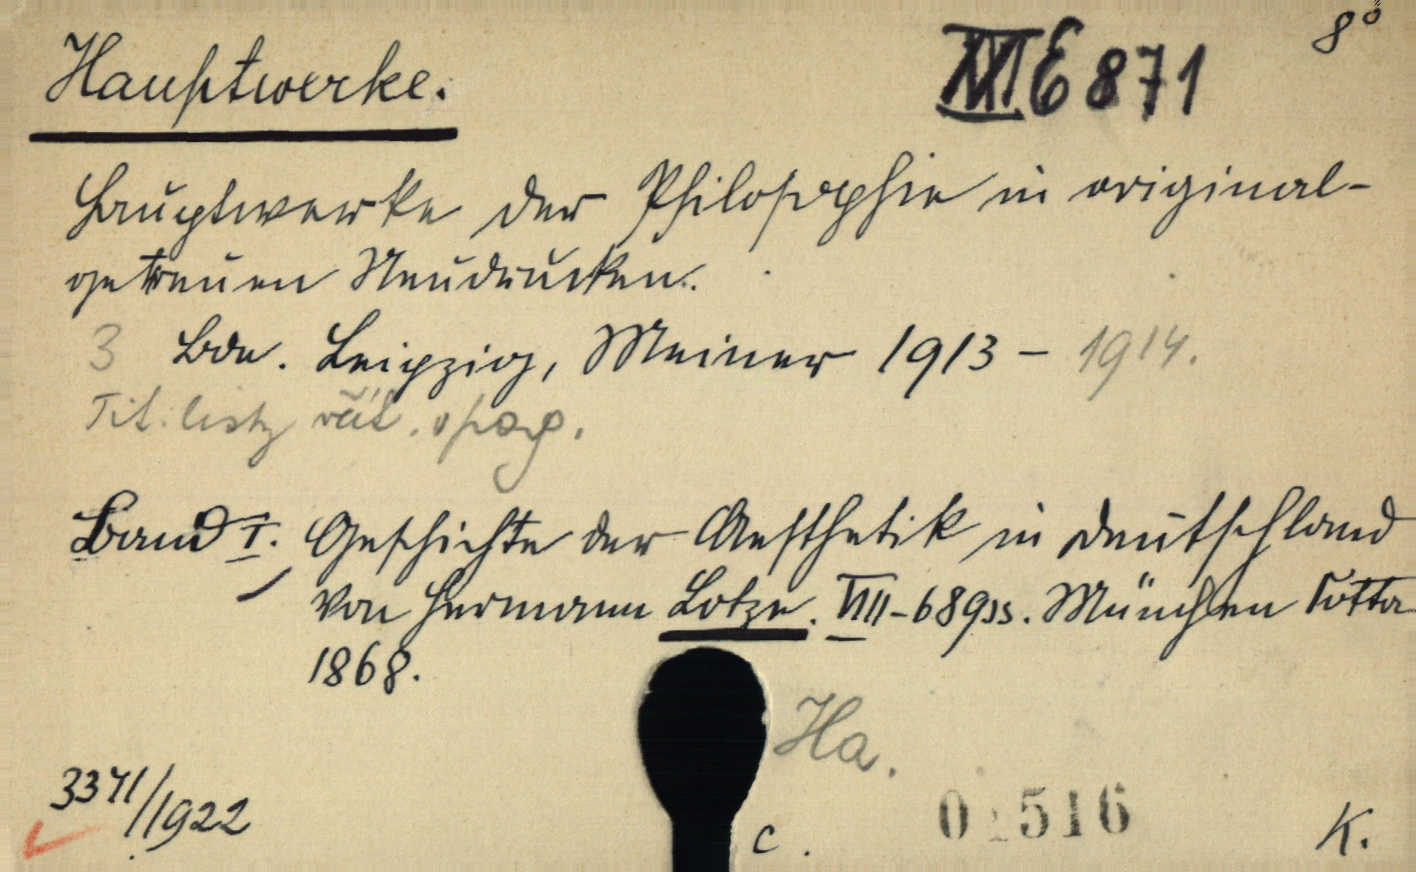 8°
Hauptwerke.
E 871
Hauptwerke der Philosophie in original-
getreuen Neudrucken.
3 Bde. Leipzig, Meiner 1913 – 1914.
Tit. listy
Band I. Geschichte der Aesthetik in Deutschland
von Hermann Lotze. VIII-689ss. München Cotta
1868.
Ha.
3371/1922
c.
516
K.